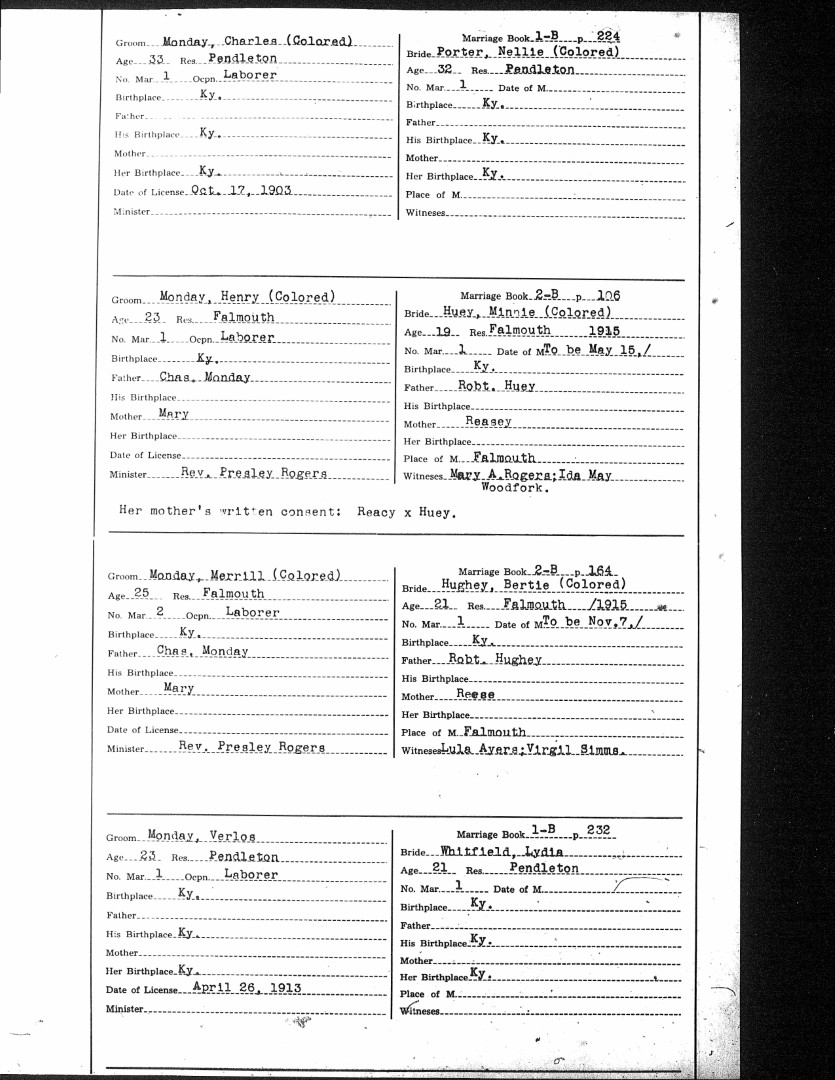 Groom Monday, Charles (Colored)
Age 33 Res. Pendleton
No. Mar 1 Ocpn. Laborer
Birthplace Ky.
Father
His Birthplace Ky.
Mother
Her Birthplace Ky.
Date of License Oct. 17, 1903
Minister
Marriage Book 1-B p. 224
Bride Porter, Nellie (Colored)
Age 32 Res. Pendleton
No. Mar. 1 Date of M.
Birthplace Ky.
Father
His Birthplace Ky.
Mother
Her Birthplace Ky.
Place of M.
Witneses
Groom Monday, Henry (Colored)
Age 23 Res. Falmouth
No. Mar. 1 Ocpn. Laborer
Birthplace Ky.
Father Chas. Monday
His Birthplace
Mother Mary
Her Birthplace
Date of License
Minister Rev. Presley Rogers
Marriage Book 2-B p. 106
Bride Huey, Minnie (Colored)
Age 19 Res. Falmouth 1915
No. Mar. 1 Date of M. To be May 15,/
Birthplace Ky.
Father Robt. Huey
His Birthplace
Mother Reasey
Her Birthplace
Place of M. Falmouth
Witneses Mary A.Rogers;Ida May
Woodfork.
Her mother's written consent: Reacy x Huey.
Groom Monday, Merrill (Colored)
Age 25 Res. Falmouth
No. Mar 2 Ocpn. Laborer
Birthplace Ky.
Father Chas. Monday
His Birthplace
Mother Mary
Her Birthplace
Date of License
Minister Rev. Presley Rogers
Marriage Book 2-B p. 164
Bride Hughey, Bertie (Colored)
Age 21 Res. Falmouth /1915
No. Mar. 1 Date of M. To be Nov.7,/
Birthplace Ky.
Father Robt. Hughey
His Birthplace
Mother Reese
Her Birthplace
Place of M. Falmouth
Witneses Lula Ayers;Virgil Simms.
Groom Monday, Verlos
Age 23 Res. Pendleton
No. Mar. 1 Ocpn. Laborer
Birthplace Ky.
Father
His Birthplace Ky.
Mother
Her Birthplace Ky.
Date of License April 26, 1913
Minister
Marriage Book 1-B p. 232
Bride Whitfield, Lydia
Age 21 Res. Pendleton
No. Mar. 1 Date of M.
Birthplace Ky.
Father
His Birthplace Ky.
Mother
Her Birthplace Ky.
Place of M.
Witneses